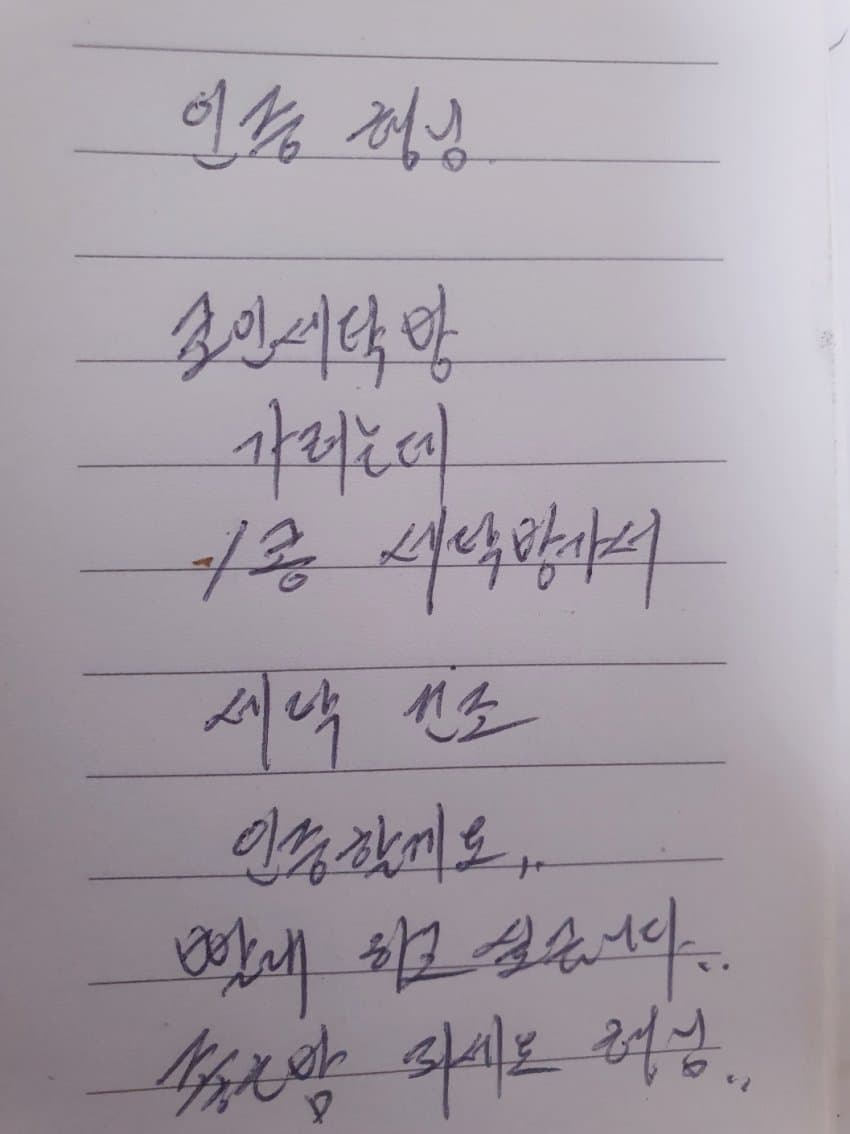 인증 형님
코인세탁방
가려는데
1층 세탁방가서
세탁 건조
인증할게요,,
빨래 하고 싶습니다..
하세요 형님..